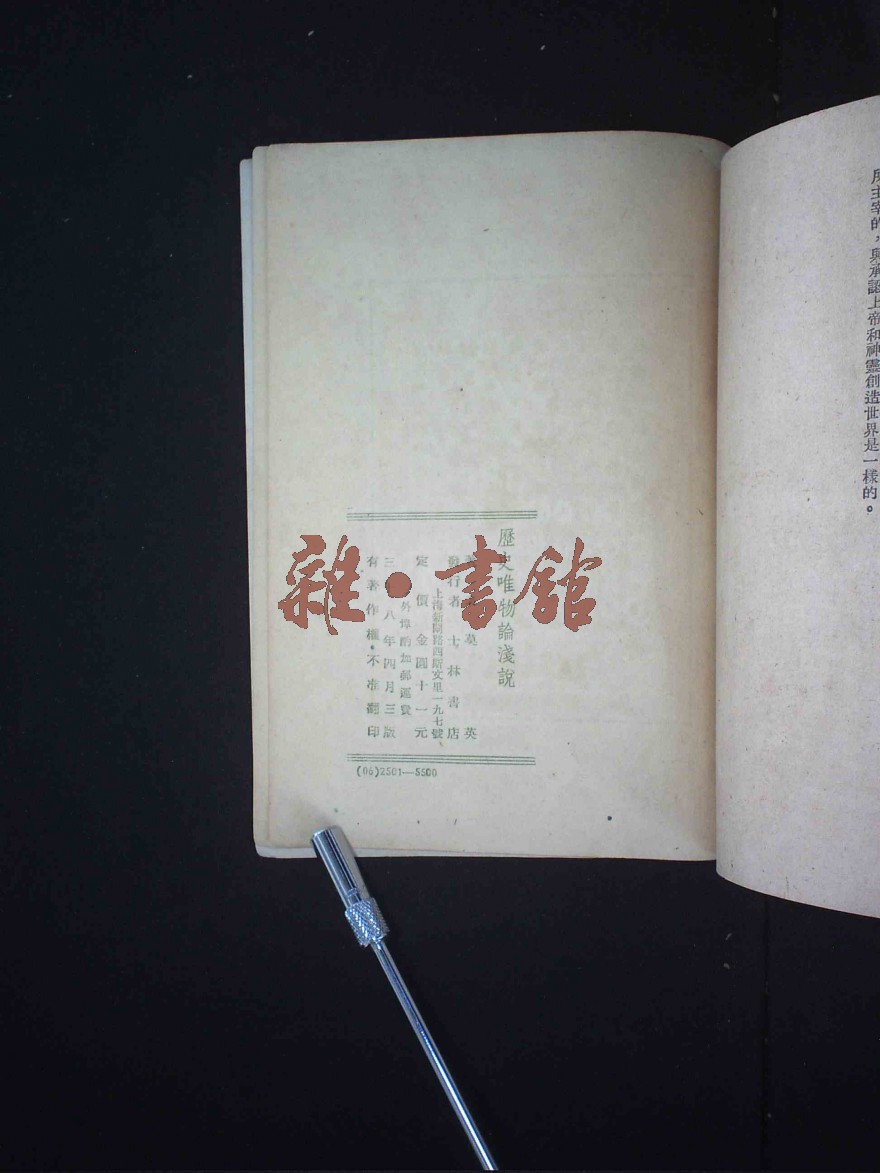 所主宰的，與承認上帝和神靈創造世界是一樣的。
歷史唯物論淺說
英
發行者 士林書店
上海新閘路西斯文里一九七號
定價金圓十一元
外埠酌加郵運費
三八年四月三版
有著作權·不准翻印
(06)2501—5500
雜·書館